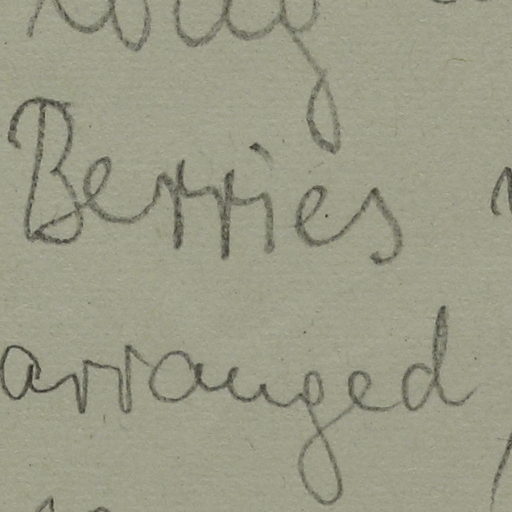 Berries
arranged,